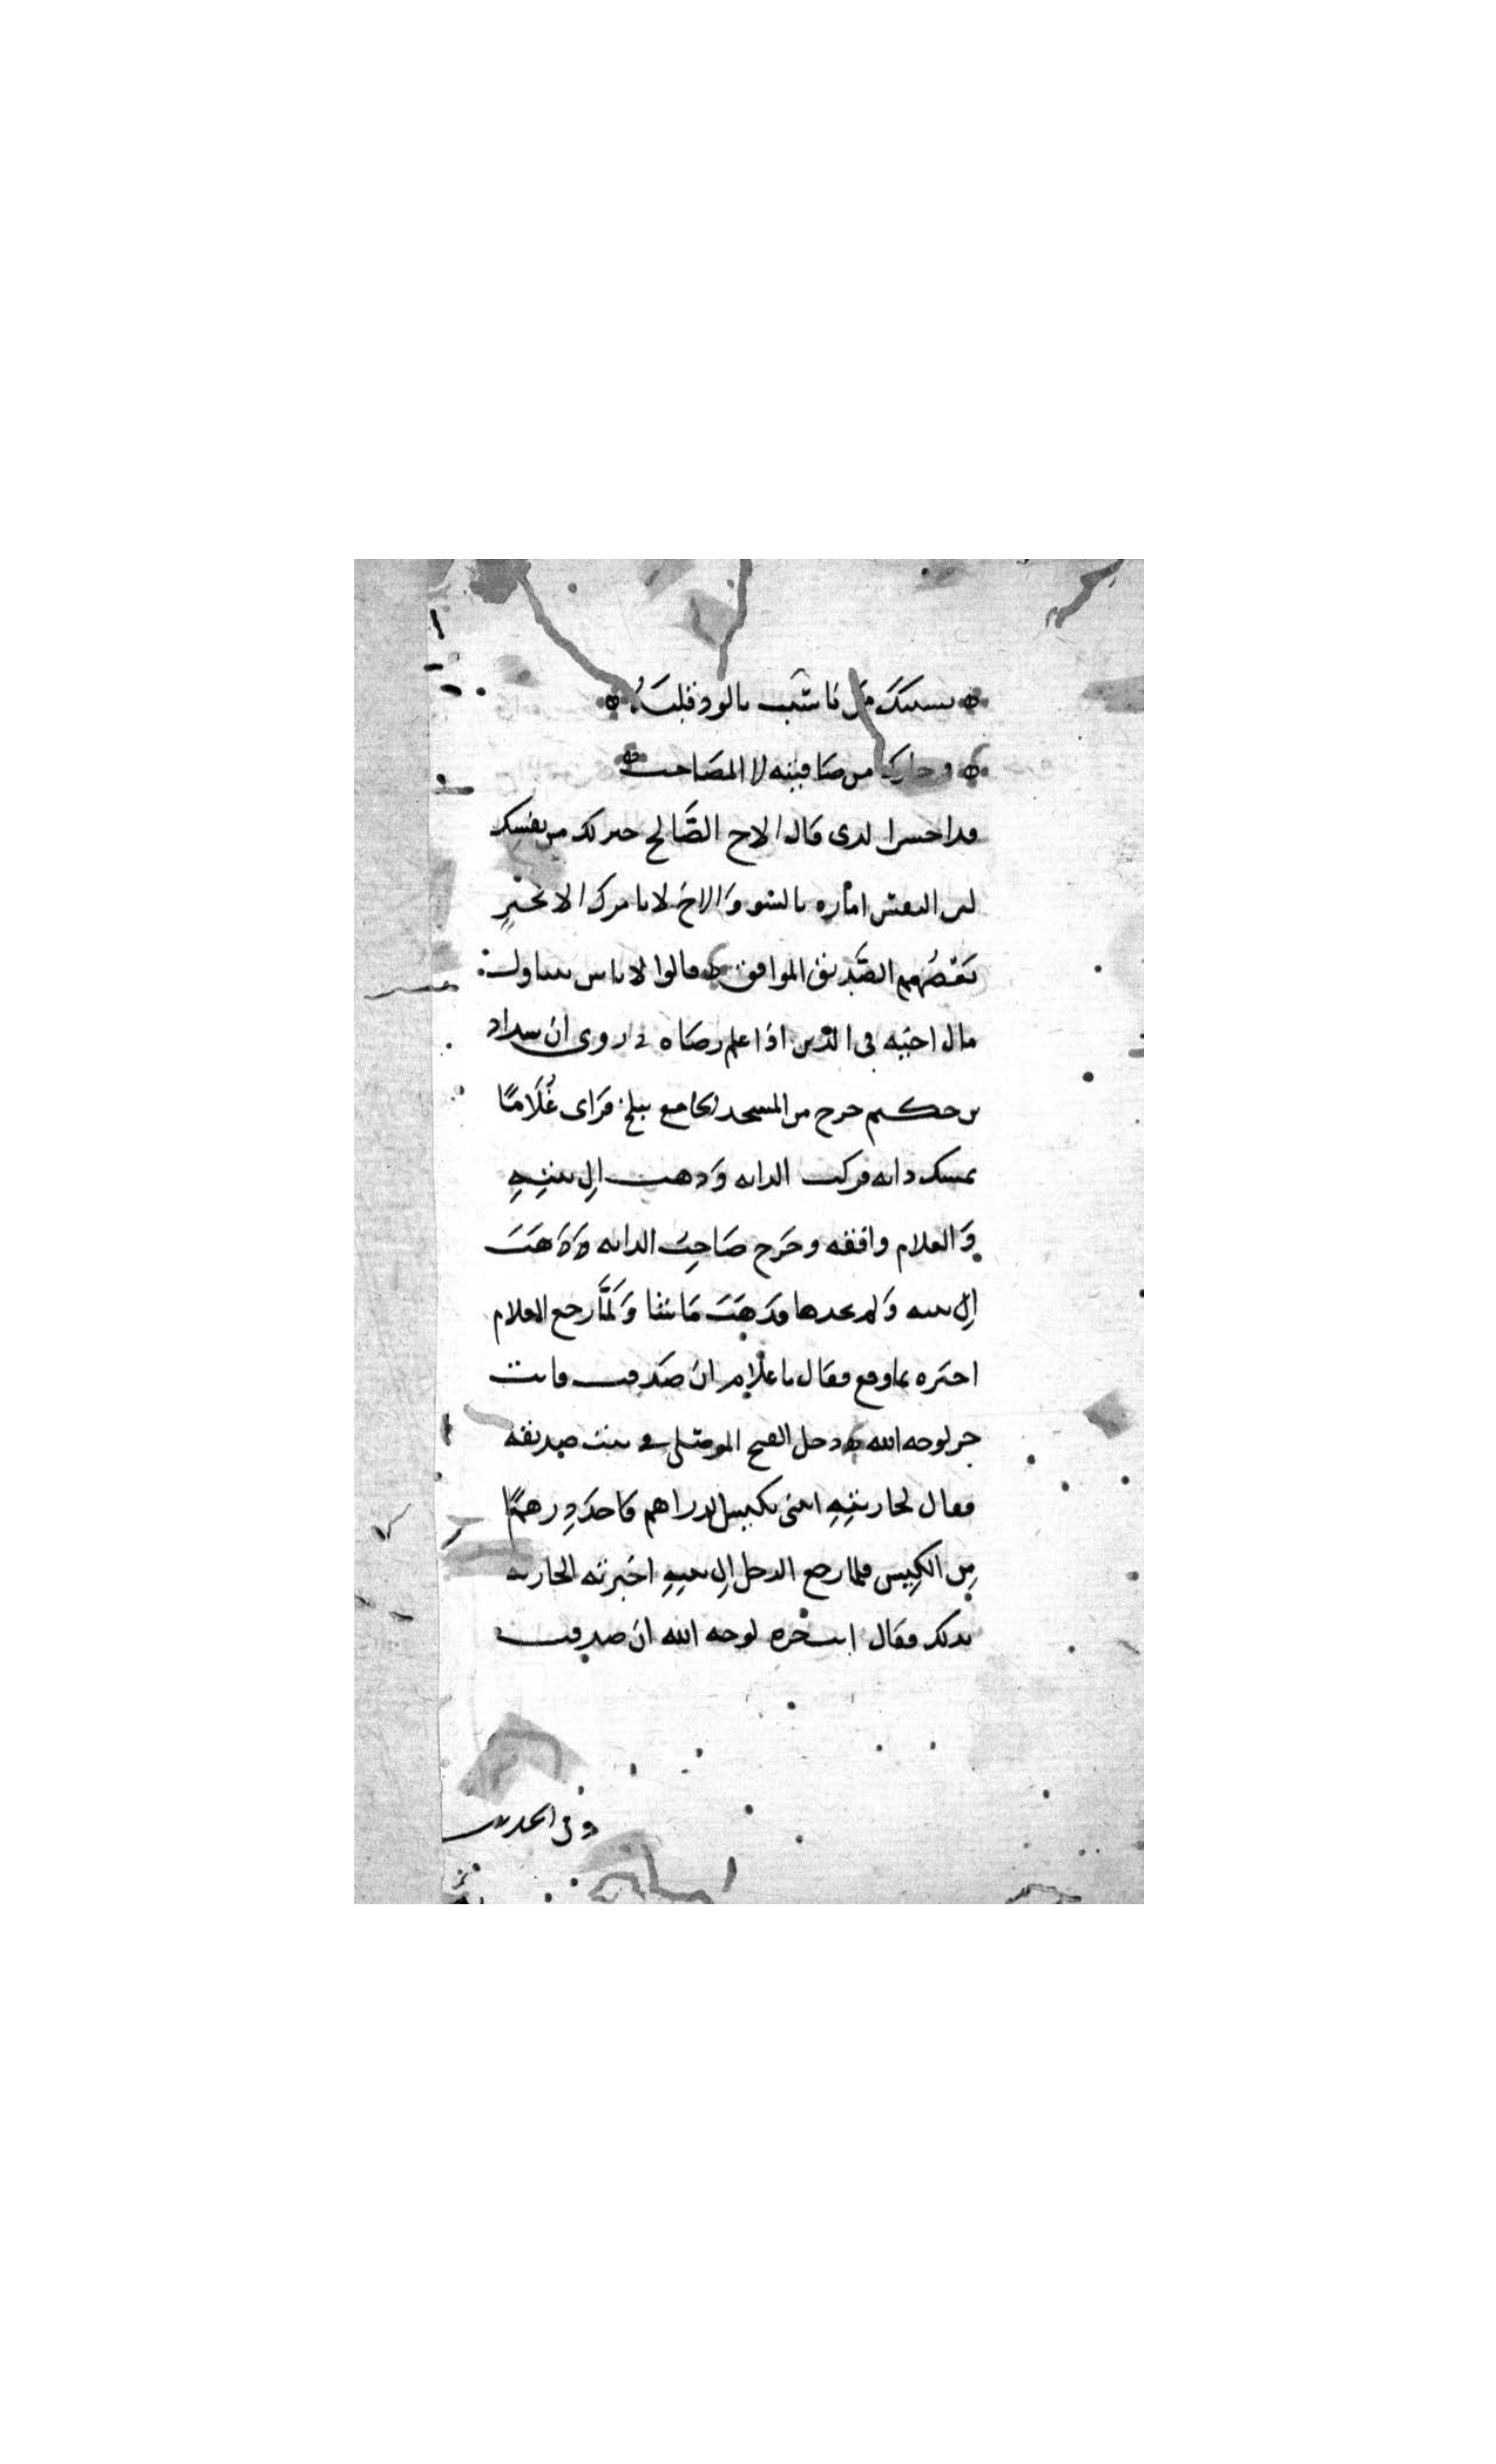 نسيبك من ناسبت بالود قلبه
وجارك من صافيته لا المصاحب
قال الاخ الصالح خير لك من نفسك
لان النفس امارة بالسوء والاخ لا يامرك الا بخير
بعضهم الصديق الموافق قالوا لا باس بتناول
مال اخيه في الدين اذا علم رضاه روى ان شداد
بن حكيم خرج من المسجد الجامع ببلخ فراى غلاما
يمسك دابة فركب الدابة وذهب الى بيته
والغلام واقفه وخرج صاحب الدابة وذهب
الى بيته ولم يجدها فذهب ماشيا ولما رجع الغلام
اخبره بما وقع فقال يا غلام ان صدقت فانت
حر لوجه الله ودخل الفتح الموصلي في بيت صديقه
فقال لجاريته ائتني بكيس الدراهم فاخذ درهما
من الكيس فلما رجع الرجل الى بيته اخبرته الجارية
بذلك فقال انت حرة لوجه الله ان صدقت
وفي الحديث